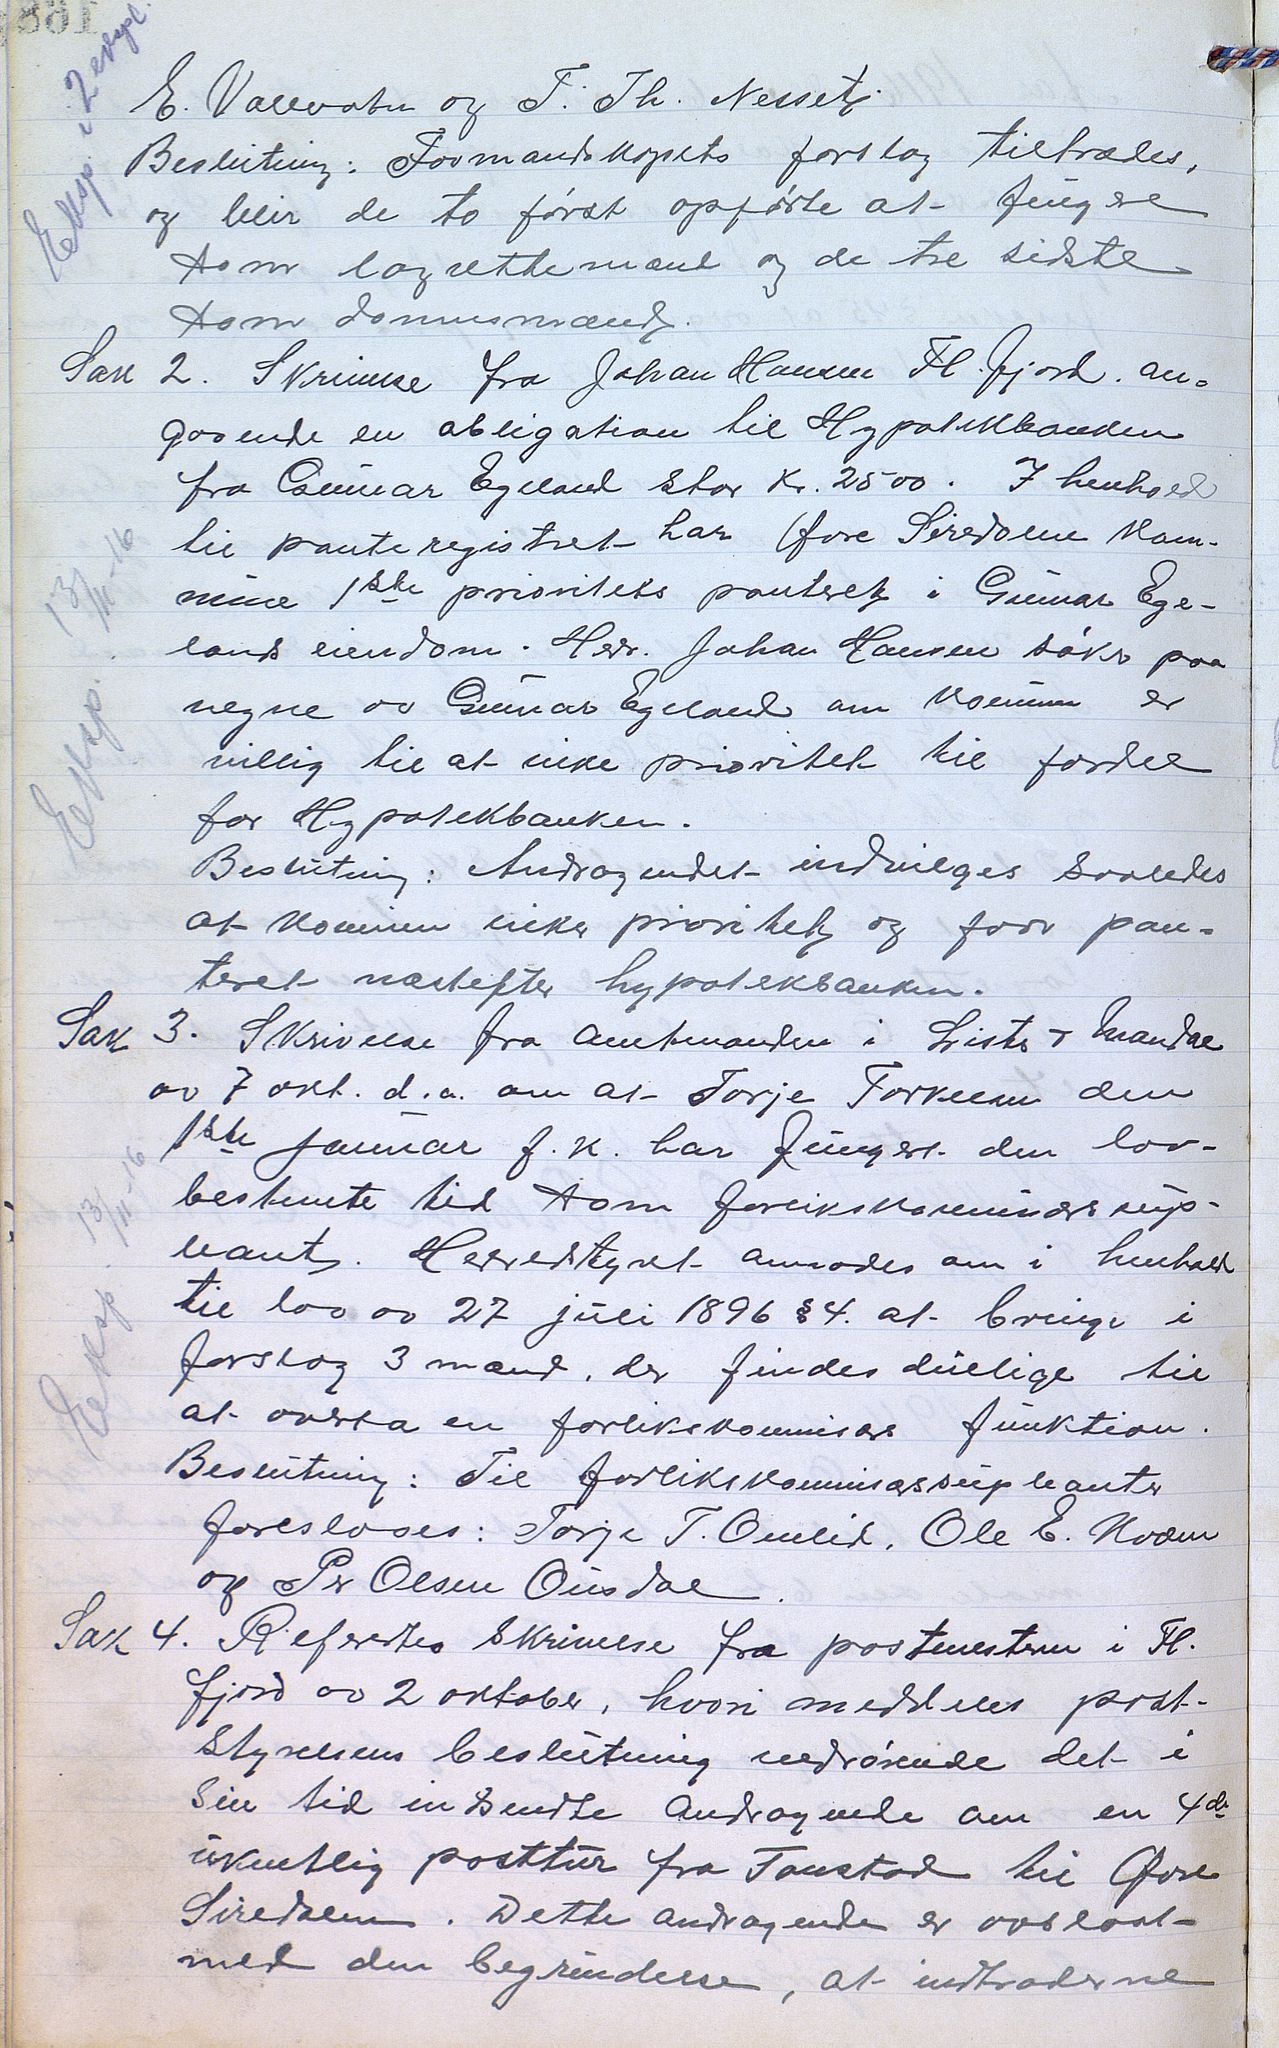 Eksp. i 2 expl.
E. Vallevatn og T. Th. Nesset.
Beslutning: Formandskapets forslag tiltrædes,
og blir de to først opførte at fungere
som lagrettemænd og de tre sidste
som domsmænd.
Sak 2. Skrivelse fra Johan Hansen Fl.fjord. an-
gaaende en obligation til Hypotekbanken
fra Gunnar Egeland stor kr. 2500. I henhold
til panteregistret har Øvre Siredalens kom-
mune 1ste prioritets panteret i Gunnar Ege-
lands eiendom. Herr. Johan Hansen søker paa
vegne av Gunnar Egeland om kommunen er
villig til at vike prioritet til fordel
for Hypotekbanken.
Eksp. 13/11-16
Beslutning: Andragendet indvilges saaledes
at kommunen viker prioritet og faar pan-
teret næstefter hypotekbanken.
Sak 3. Skrivelse fra amtmanden i Lister & Mandal
av 7 okt. d.a. om at Torje Torkelsen den
1ste januar f.k. har fungert den lov-
bestemte tid som forlikskommissærsup-
leant. Herredstyret anmodes om i henhold
til lov av 27 juli 1896 § 4. at bringe i
forslag 3 mænd, der findes duelige til
at overta en forlikskommissærs funktion.
Eksp. 13/11-16
Beslutning: Til forlikskommissærsupleanter
foreslaaes: Torje T. Omlid, Ole E. Kvæven
og Per Olsen Ousdal.
Sak 4. Refereertes skrivelse fra postmesteren i Fl.
fjord av 2 oktober, hvori meddeles post-
styrelsens beslutning vedrørende det i
sin tid indsendte andragende om en 4de
ukentlig posttur fra Tonstad til Øvre
Siredalen. Dette andragende er avslaat
med den begrundelse, at indtraderne